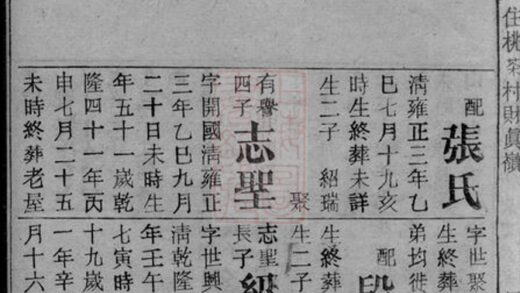 住桃茶村財眞嶺
配
張氏
清雍正三年乙
巳七月十九亥
時生終葬未詳
生二子 紹瑞
聚
有譽
四子
志聖
字開國清雍正
三年乙巳九月
二十日未時生
年五十一歲乾
隆四十一年丙
申七月二十五
未時終葬老屋
字世聚
生終葬
弟均徙
配
段
生終葬
生二子
志聖
長子
紹
字世興
清乾隆
年壬午
七寅時
十九歲
一年辛
月十六